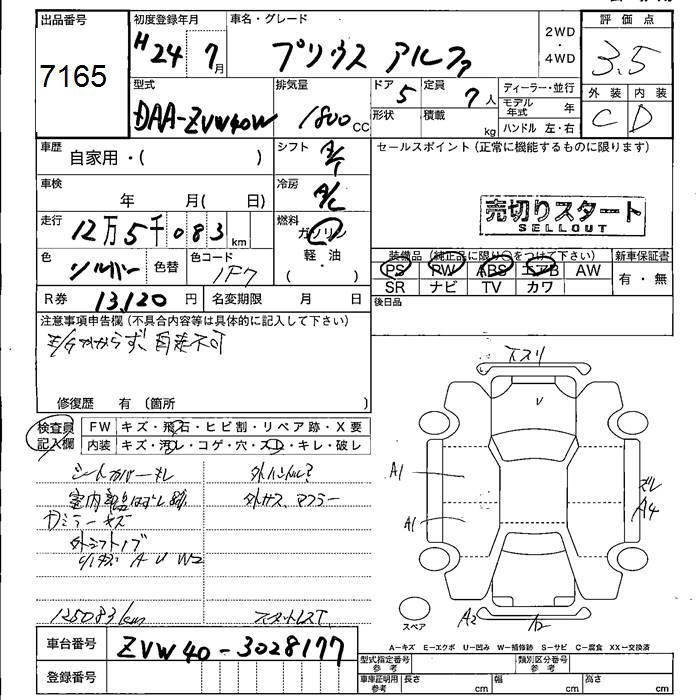 出品番号
7165
初度登録年月
H24 7月
車名・グレード
プリウス アルファ
2WD
・
4WD
評価点
3.5
外装 内装
C D
型式
DAA-ZVW40W
排気量
1800 CC
ドア 5
形状
定員 7人
積載 kg
ディーラー・並行
モデル年式 年
ハンドル 左・右
車歴
自家用・( )
シフト
A/T
車検
年 月( 日)
冷房
A/C
走行
12万5千083km
燃料
ガソリン
軽・油
( )
色
シルバー
色替
色コード
1F7
R券 13,120円
名変期限 月 日
セールスポイント(正常に機能するものに限ります)
売切りスタート
SELLOUT
装備品(純正品に限り○をつけて下さい)
PS PW ABS エアB AW
SR ナビ TV カワ
新車保証書
有・無
後日品
注意事項申告欄(不具合内容等は具体的に記入して下さい)
E/Gかからず、自走不可
修復歴 有(箇所 )
検査員
記入欄
FW キズ・飛石・ヒビ割・リペア跡・X要
内装 キズ・汚レ・コゲ・穴・スレ・キレ・破レ
シートカバーキレ
外ハンドル?
室内部品はずし跡
外ガス、マフラー
ミラーキズ
外シフトノブ
A U W2
125083km
ススリ
V
A1
A1
ズレ
A4
A2
スペア
A−キズ E−エクボ U−凹み W−補修跡 S−サビ C−腐食 XX−交換済
車台番号
ZVW40-3028177
登録番号
型式指定番号
参考
類別区分番号
参考
車庫証明用
参考
長さ cm
幅 cm
高さ cm